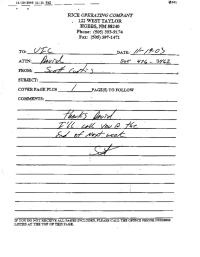 RICE OPERATING COMPANY
122 WEST TAYLOR
HOBBS, NM 88240
Phone: (505) 393-9174
Fax: (505) 397-1471
TO: VFC DATE: 11-19-03
ATTN: David 505 476-3462
FROM: Scott Curtis
SUBJECT:
COVER PAGE PLUS 1 PAGE(S) TO FOLLOW
COMMENTS:
Thanks David
I'll call you @ the
End of next week
Scott
IF YOU DO NOT RECEIVE ALL PAGES INCLUDED, PLEASE CALL THE OFFICE PHONE NUMBER
LISTED AT THE TOP OF THIS PAGE.